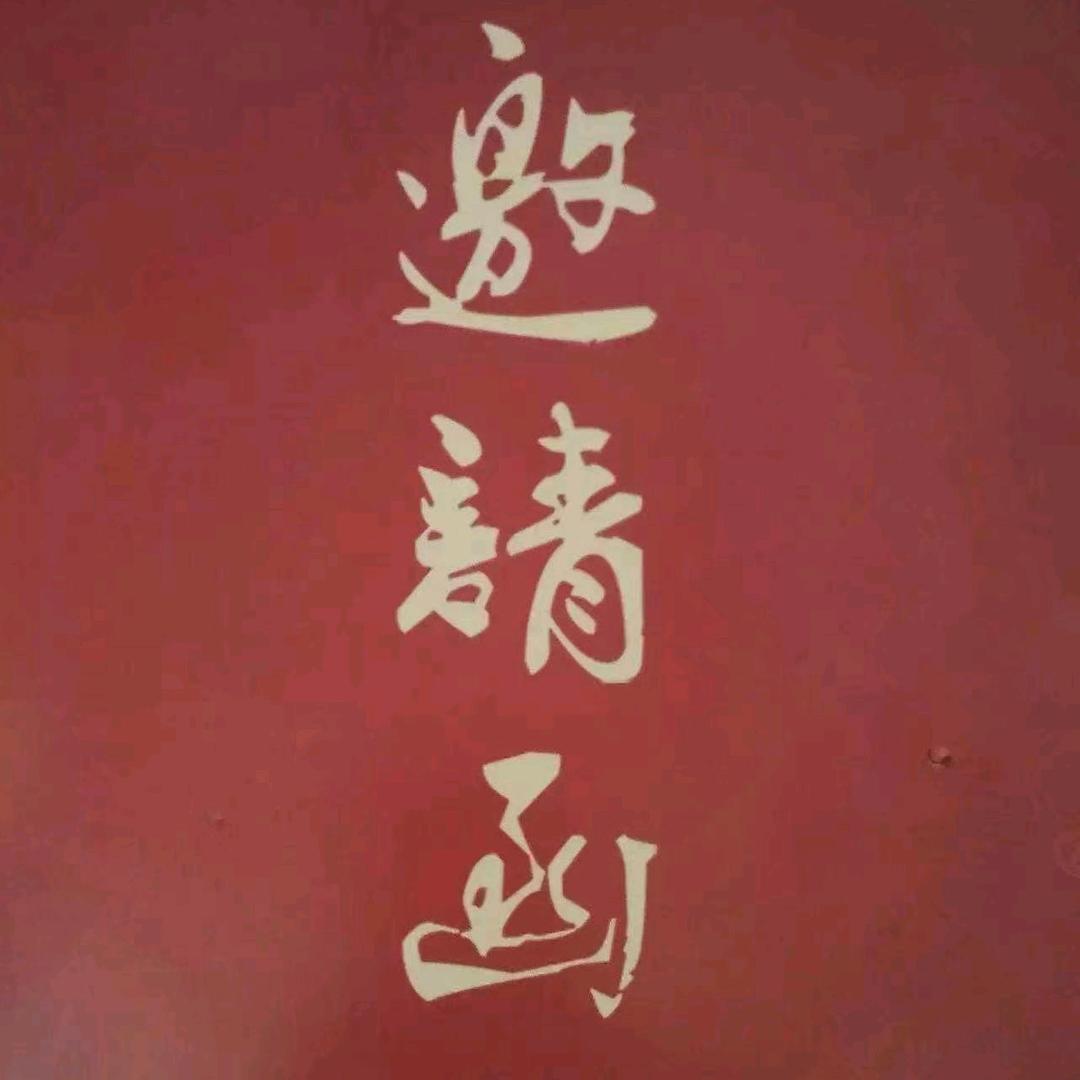 邀請函